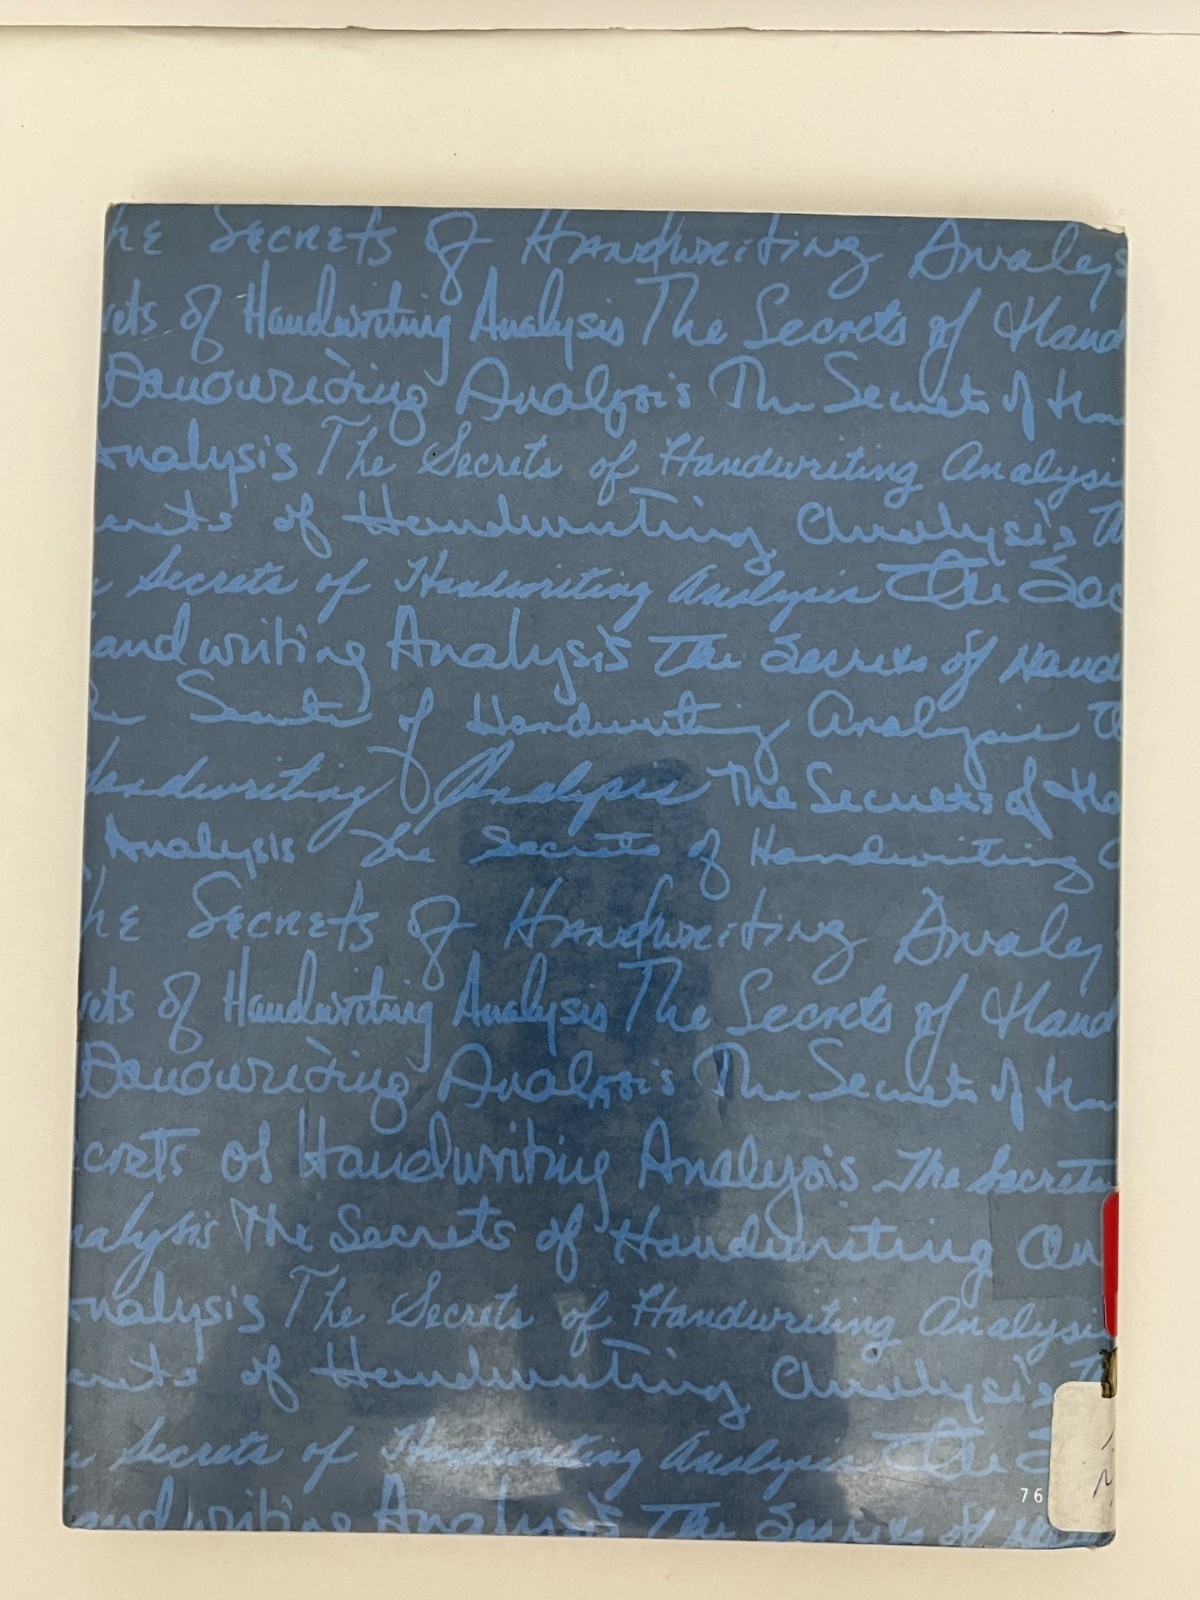 he Secrets of Handwriting Analys
rets of Handwriting Analysis The Secrets of Hand
Handwriting Analysis The Secrets of Han
Analysis The Secrets of Handwriting Analysis
crets of Handwriting Analysis Th
e Secrets of Handwriting Analysis The Sec
andwriting Analysis The Secrets of Hand
he Secrets of Handwriting Analysis Th
Handwriting Analysis The Secrets of Ha
Analysis The Secrets of Handwriting A
he Secrets of Handwriting Analy
rets of Handwriting Analysis The Secrets of Hand
Handwriting Analysis The Secrets of Han
ecrets of Handwriting Analysis The Secrets
nalysis The Secrets of Handwriting An
Analysis The Secrets of Handwriting Analysis
crets of Handwriting Analysis T
e Secrets of Handwriting Analysis The S
76
andwriting Analysis The Secrets of Hand